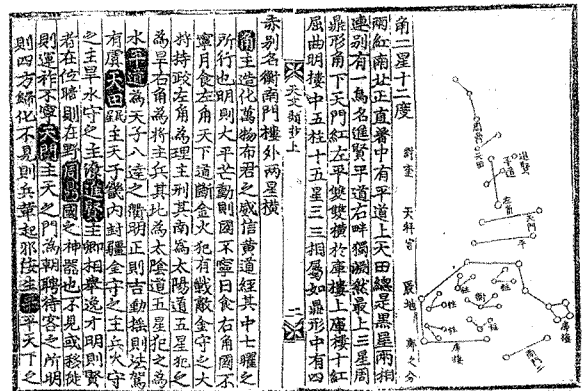 周鼎
天田
進賢
平道
左角
天門
平
柱
柱
衡
柱
柱
庫樓
南門
角二星十二度
天秤宮
辰地
鄭之分
兩紅南北正直著中有平道上天田緫是黑星兩相
連別有一烏名進賢平道右畔獨淵然最上三星周
鼎形角下天門紅左平雙雙橫於庫樓上庫樓十紅
屈曲明樓中五柱十五星三三相屬如鼎形中有四
赤別名衡南門樓外兩星橫
天文類抄上
二
角主造化萬物布君之威信黃道經其中七曜之
所行也明則大平芒動則國不寧日食右角國不
寧月食左角天下道斷金火犯有戰敵金守之大
將持政左角為理主刑其南為太陽道五星犯之
為旱右角為將主兵其北為太陰道五星犯之為
水平道為天子八達之衢明正則吉動搖則法駕
有虞天田主天子畿內封疆金守之主兵火守
之主旱水守之主潦進賢主卿相擧逸才明則賢
者在位暗則在野周鼎國之神器也不見或移徙
則運祚不寧天門主天之門為朝聘待客之所明
則四方歸化不見則兵革起邪佞生平平天下之